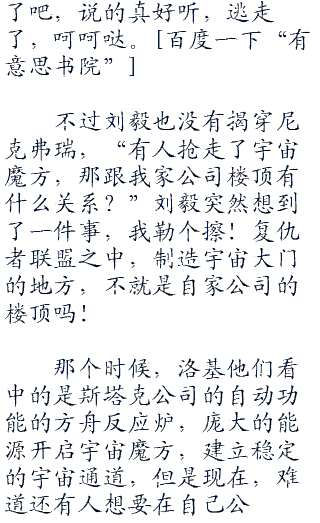 了吧，说的真好听，逃走
了，呵呵哒。[百度一下“有
意思书院”]
不过刘毅也没有揭穿尼
克弗瑞，“有人抢走了宇宙
魔方，那跟我家公司楼顶有
什么关系？”刘毅突然想到
了一件事，我勒个擦！复仇
者联盟之中，制造宇宙大门
的地方，不就是自家公司的
楼顶吗！
那个时候，洛基他们看
中的是斯塔克公司的自动功
能的方舟反应炉，庞大的能
源开启宇宙魔方，建立稳定
的宇宙通道，但是现在，难
道还有人想要在自己公